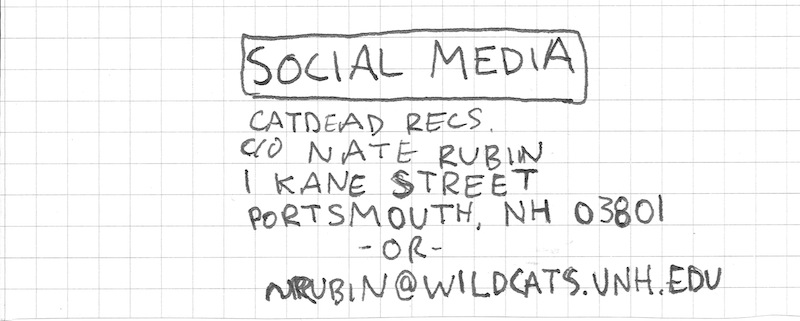 SOCIAL MEDIA
CATDEAD RECS.
C/O NATE RUBIN
1 KANE STREET
PORTSMOUTH, NH 03801
-OR-
NRUBIN@WILDCATS.UNH.EDU